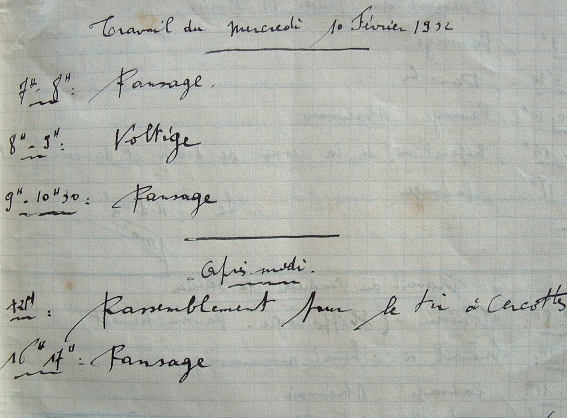 Travail du Mercredi 10 Février 1932
7H - 8H : Pansage.
8H - 9H : Voltige
9H - 10H30 : Pansage
Après-midi.
: Rassemblement pour le tir à Cercottes
16H 17H : Pansage